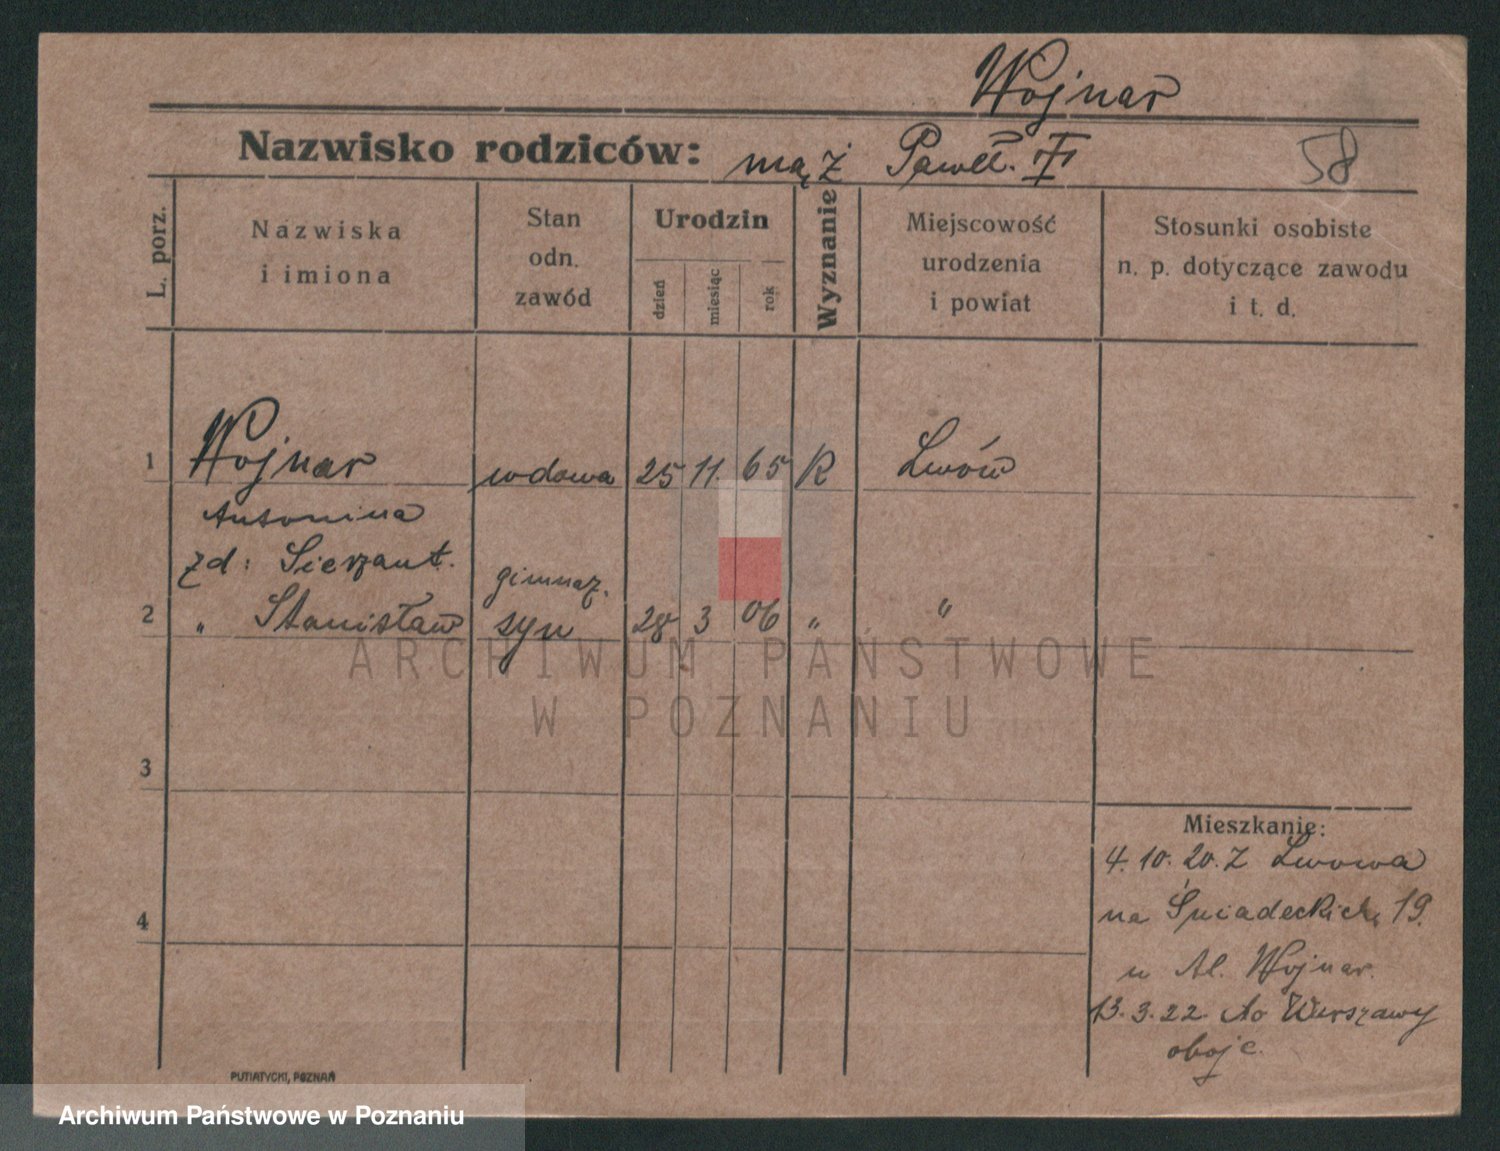 Wojnar
Nazwisko rodziców: mąż Paweł. †
58
L. porz.
Nazwiska
i imiona
Stan
odn.
zawód
Urodzin
dzień
miesiąc
rok
Wyznanie
Miejscowość
urodzenia
i powiat
Stosunki osobiste
n. p. dotyczące zawodu
i t. d.
1 Wojnar wdowa 25 11. 65 R Lwów
Antonina
zd: Sierżant.
gimnaz.
2 " Stanisław syn 28 3 06 " "
ARCHIWUM PAŃSTWOWE
W POZNANIU
3
4
Mieszkanie:
4. 10. 20. Z Lwowa
na Śniadeckich 19.
u Al. Wojnar.
13. 3. 22 do Warszawy
oboje.
PUTIATYCKI, POZNAŃ
Archiwum Państwowe w Poznaniu